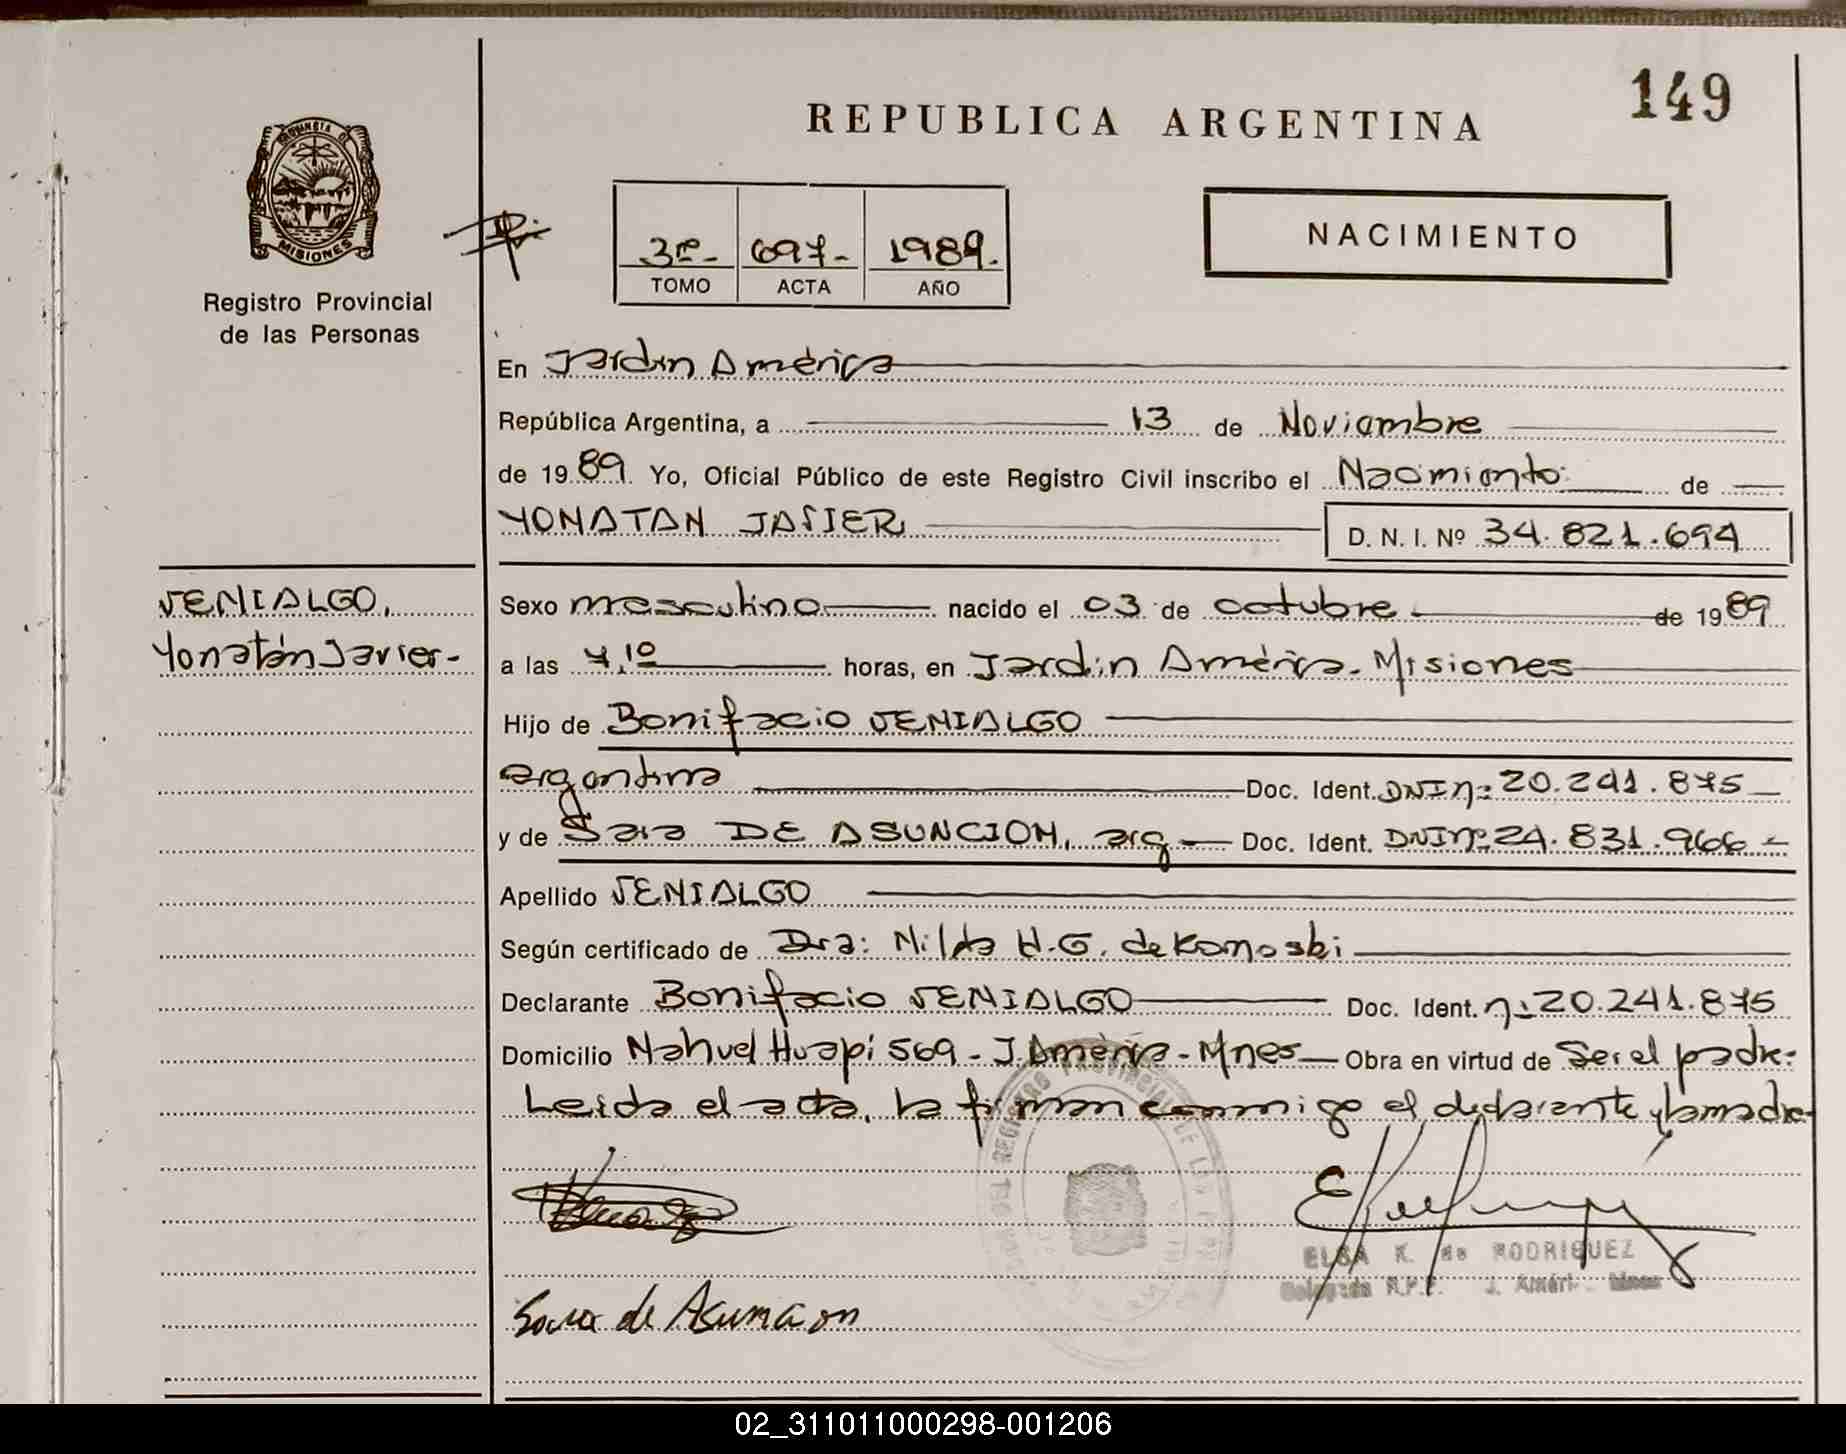 149
REPUBLICA ARGENTINA
PROVINCIA DE
MISIONES
Registro Provincial
de las Personas
3ro- 697- 1989.
TOMO ACTA AÑO
NACIMIENTO
En Jardin América
República Argentina, a 13 de Noviembre
de 1989. Yo, Oficial Público de este Registro Civil inscribo el Nacimiento de
YONATAN JAVIER D. N. I. Nº 34.821.694
VENIALGO,
Yonatán Javier-
Sexo masculino nacido el 03 de octubre de 1989
a las 7,10 horas, en Jardin América. Misiones
Hijo de Bonifacio VENIALGO
argentina Doc. Ident. DNI nº 20.241.875
y de Sara DE ASUNCION, arg Doc. Ident. DNI nº 24.831.966
Apellido VENIALGO
Según certificado de Dra: Nilda H.G. de
Declarante Bonifacio VENIALGO Doc. Ident. nº 20.241.875
Domicilio Nahuel Huapi 569 - J. América - Mnes Obra en virtud de Ser el padre.
Leida el acta, la firman conmigo el declarante y la madre
REGISTRO PROVINCIAL DE LAS
ELSA K. de RODRIGUEZ
Delegada R.P.P. J. Améri. Mnes
Sara de Asuncion
02_311011000298-001206